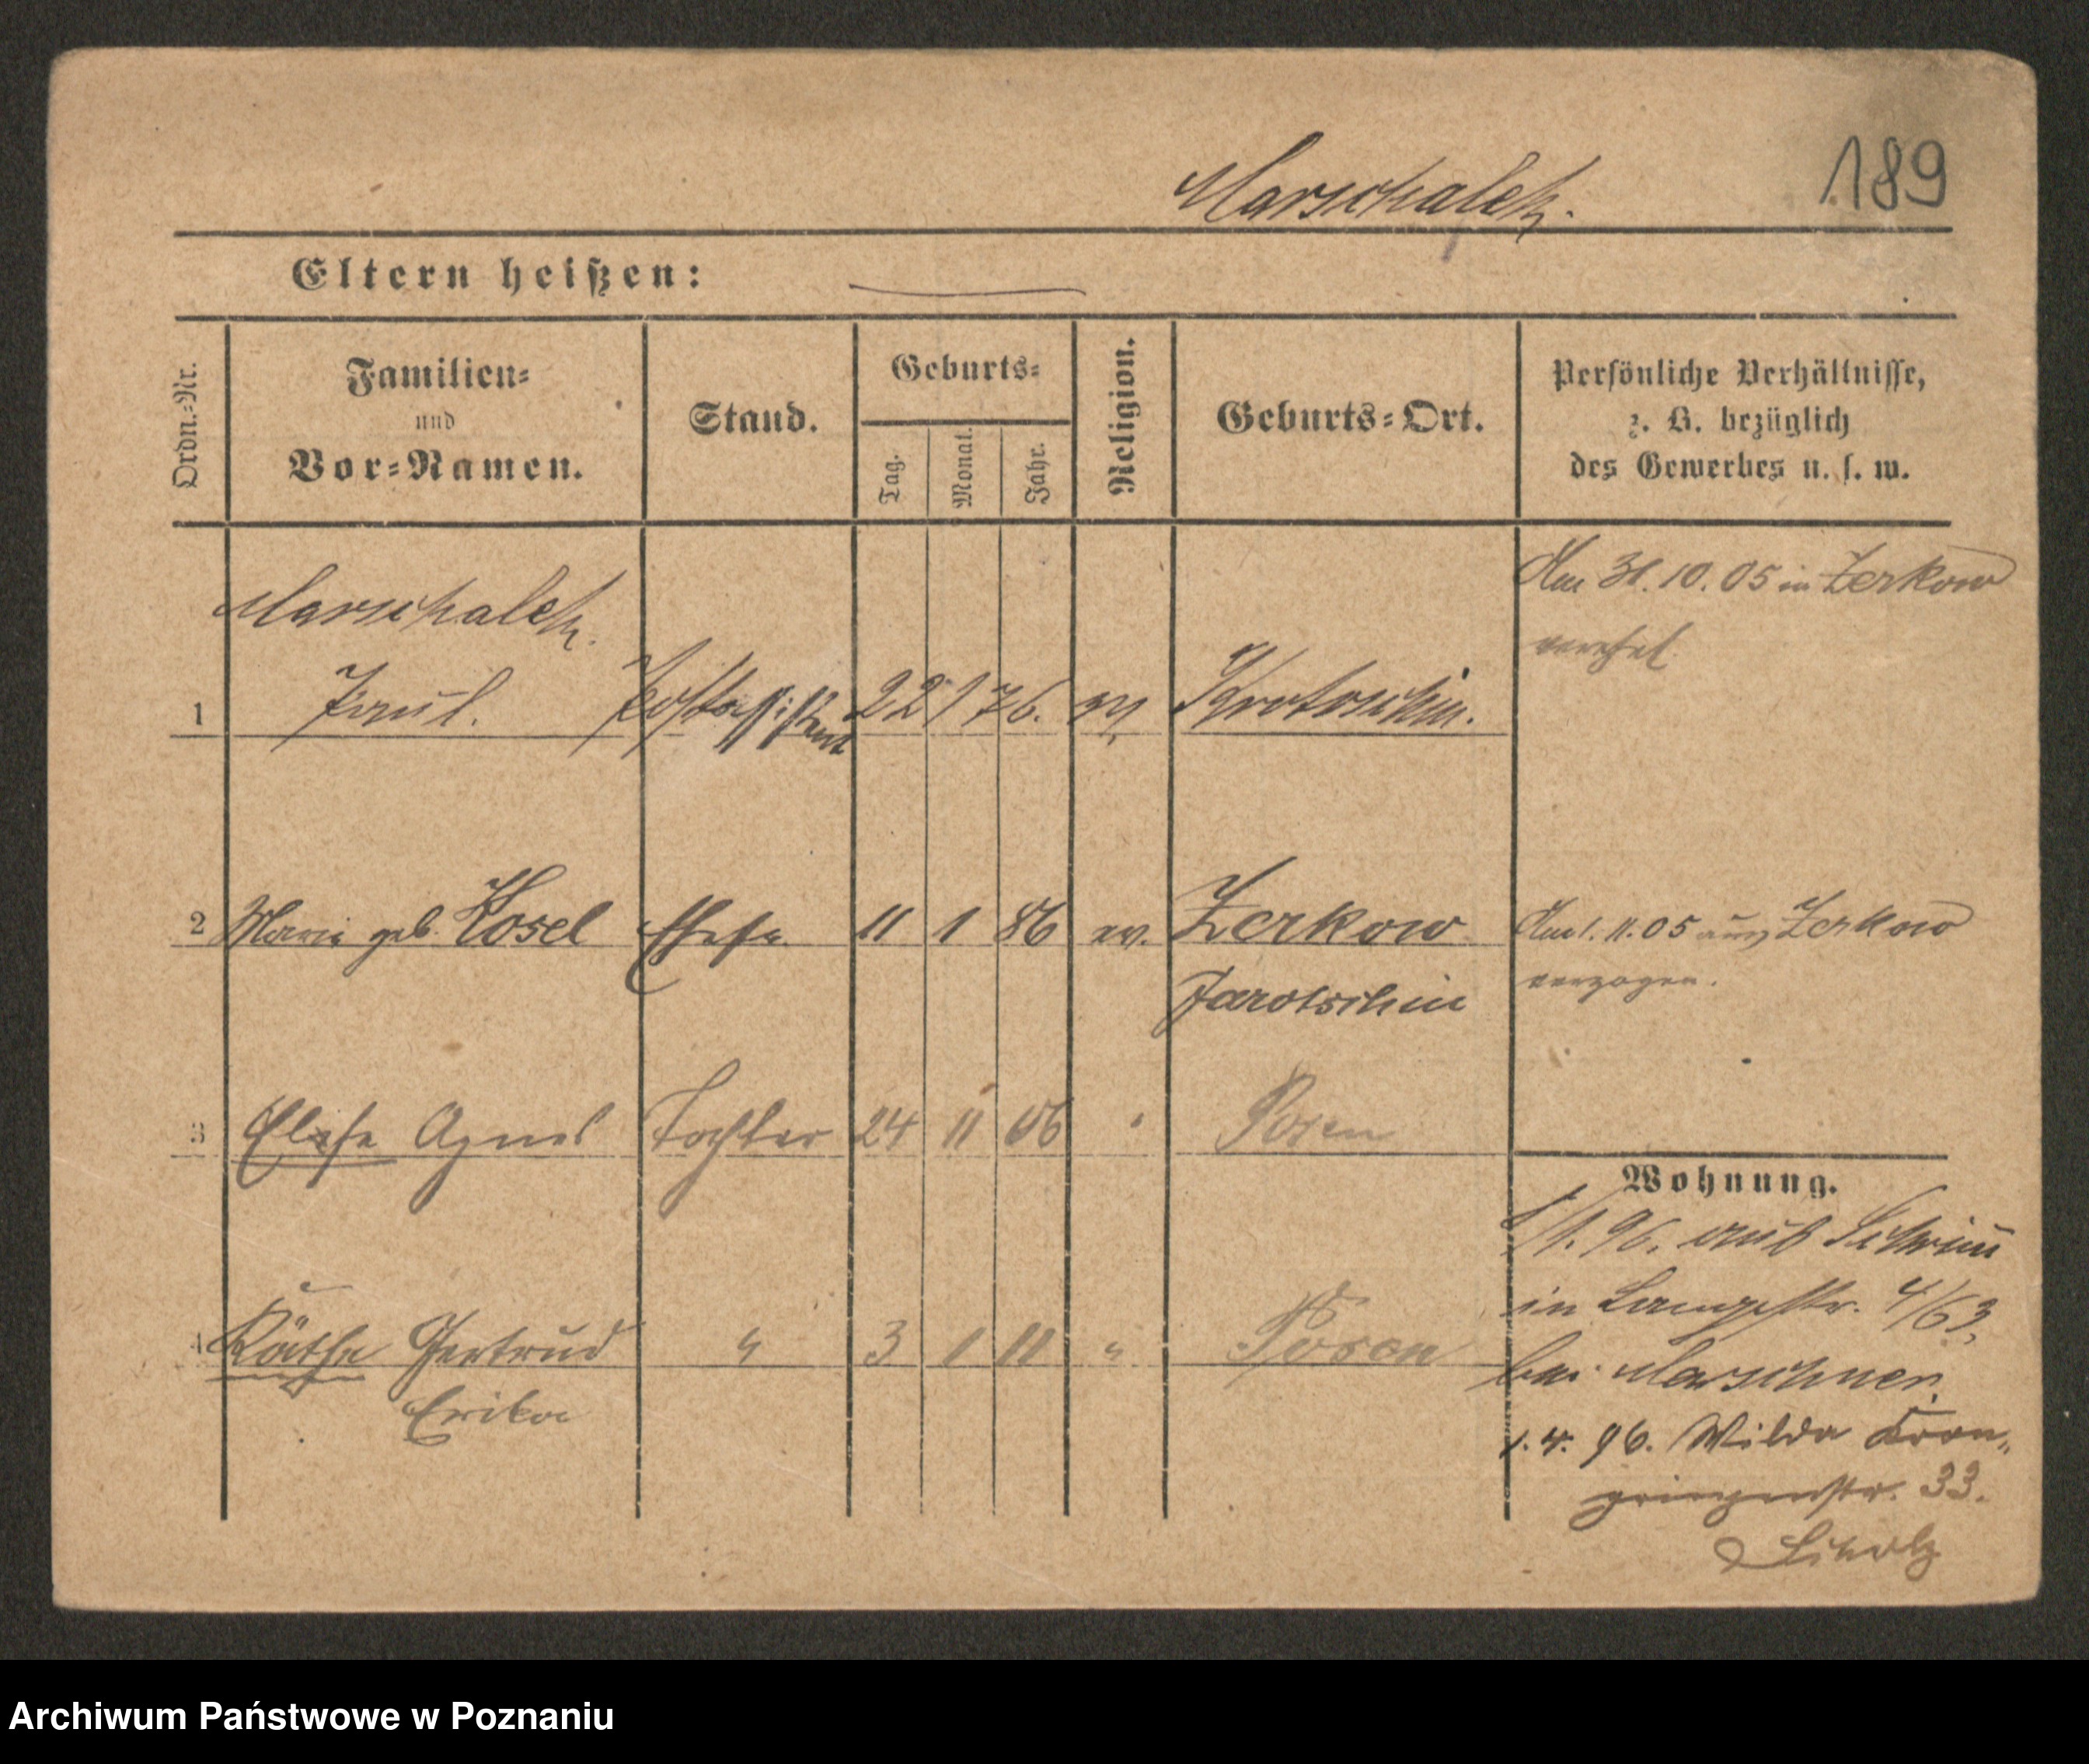 Marschalek.
189
Eltern heißen:
Ordn.-Nr.
Familien-
und
Vor-Namen.
Stand.
Geburts-
Tag.
Monat.
Jahr.
Religion.
Geburts-Ort.
Persönliche Verhältnisse,
z. B. bezüglich
des Gewerbes u. s. w.
Marschalek.
1 Paul. Postassistent 22 1 76. ev. Krotoschin.
Am 31.10.05 in Zerkow
verehel.
2 Marie geb. Kosel Ehefr. 11 1 86 ev. Zerkow
Jarotschin
Am 1.11.05 aus Zerkow
verzogen.
3 Else Agnes Tochter 24 11 06 " Posen
4 Käthe Gertrud " 3 1 11 " Posen
Erika
Wohnung.
1/1. 96. aus Schrim
in Langestr. 4/63.
bei Marschner.
1. 4. 96. Wilda Kron-
prinzenstr. 33.
Scholz
Archiwum Państwowe w Poznaniu